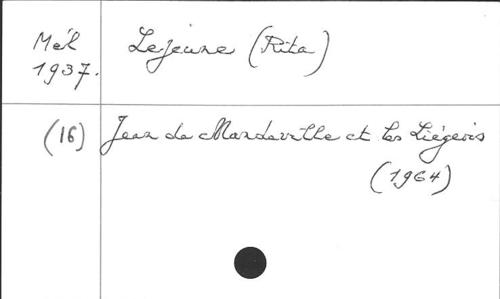 Mél
1937.
Lejeune (Rita)
(16)
Jean de Mandeville et les Liégeois
(1964)